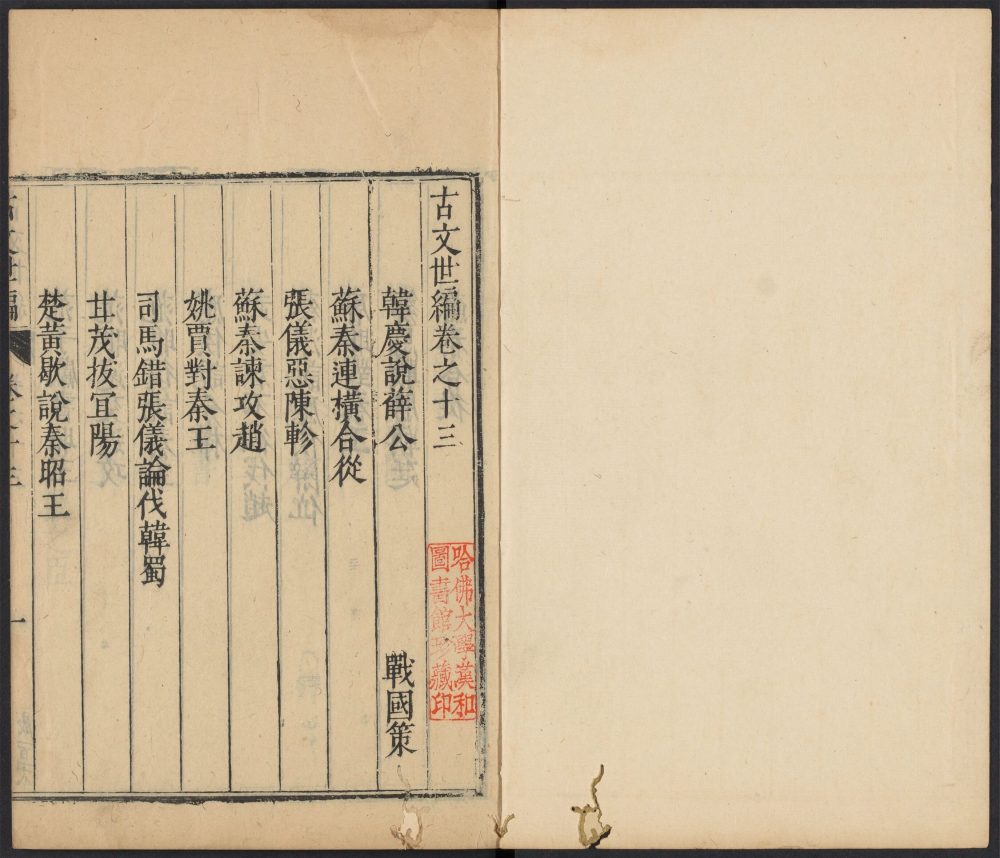 古文世編卷之十三
韓慶說薛公
戰國策
蘇秦連橫合從
張儀惡陳軫
蘇秦諫攻趙
姚賈對秦王
司馬錯張儀論伐韓蜀
甘茂拔宜陽
楚黃歇說秦昭王
古文世編
卷之十三
一
哈佛大學漢和
圖書館珍藏印